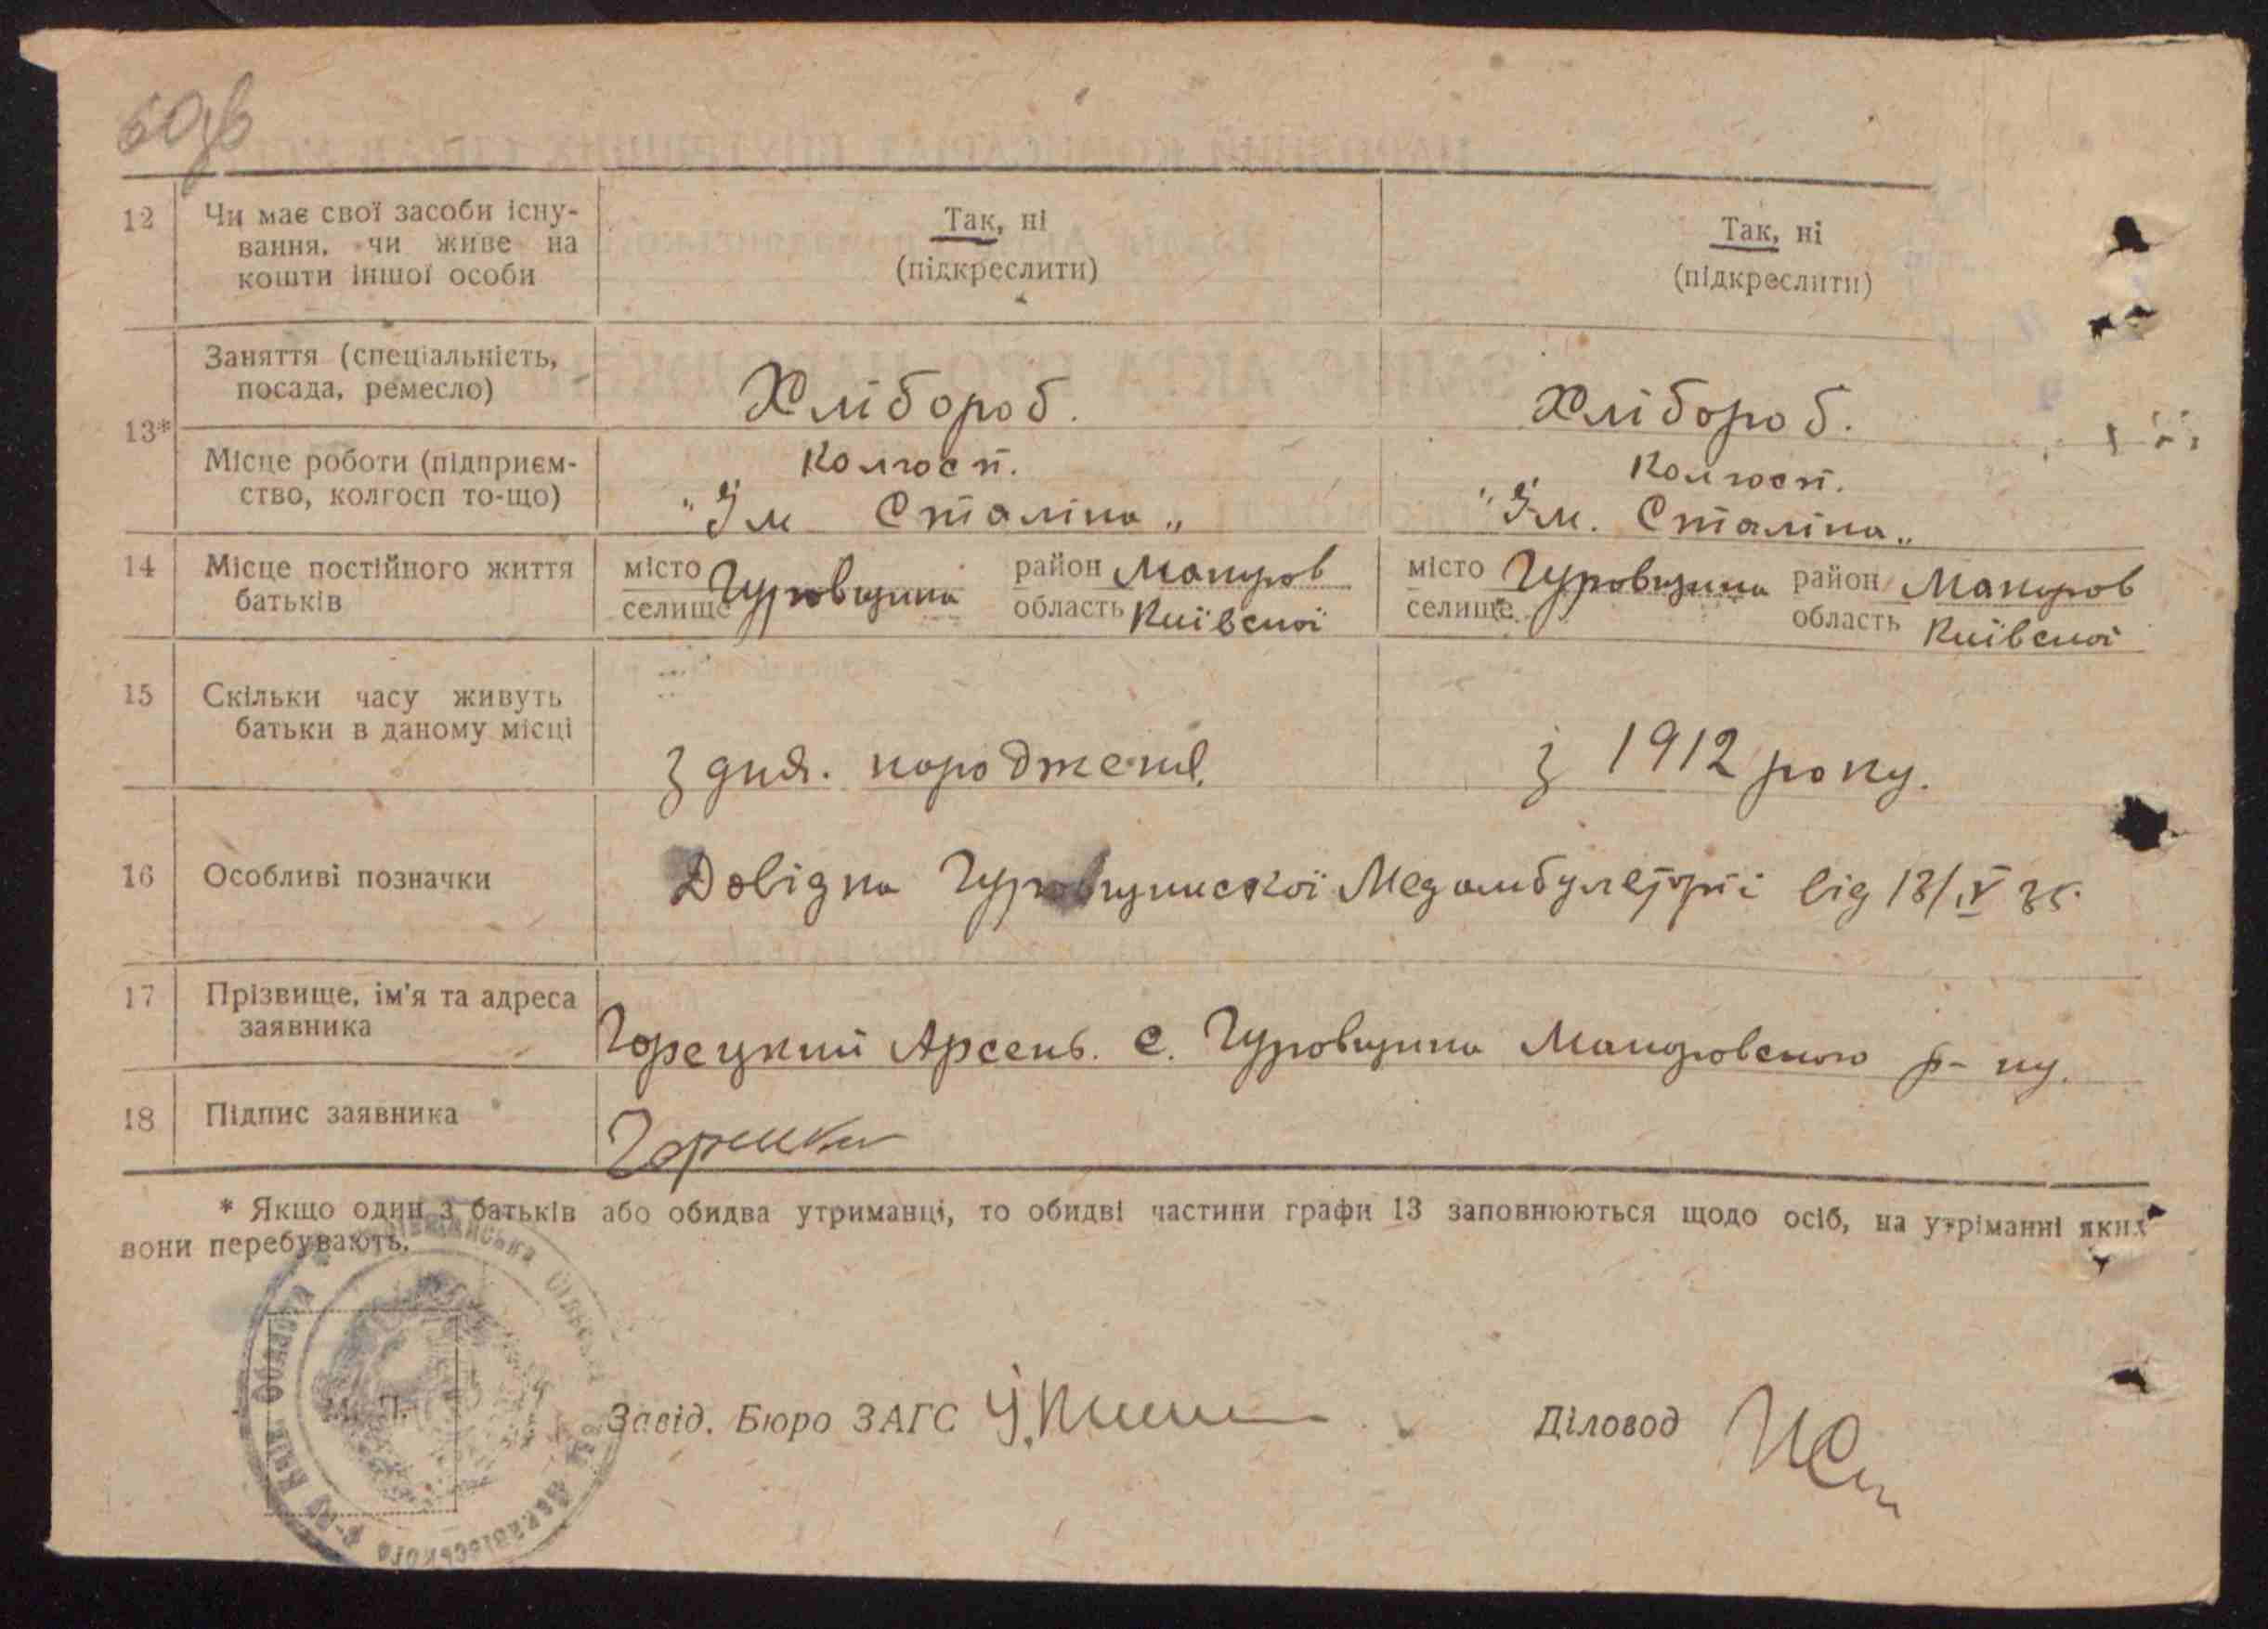 12 Чи має свої засоби існу-
вання, чи живе на
кошти іншої особи
Так, ні
(підкреслити)
Так, ні
(підкреслити)
13*
Заняття (спеціальність,
посада, ремесло)
Хлібороб.
Хлібороб.
Місце роботи (підприєм-
ство, колгосп то-що)
Колгосп.
"Ім Сталіна"
Колгосп.
"Ім. Сталіна"
14 Місце постійного життя
батьків
місто
селище
Гуровщина
район Макаров
область Київської
місто
селище
Гуровщина
район Макаров
область Київської
15 Скільки часу живуть
батьки в даному місці
З дня. породженя.
з 1912 року.
16 Особливі позначки
Довідка Гуровщинської Медамбулеторії від 13/IV 35.
17 Прізвище, ім'я та адреса
заявника
Горецкий Арсень. с. Гуровщина Макаровского р-ну.
18 Підпис заявника
* Якщо один з батьків або обидва утриманці, то обидві частини графи 13 заповнюються щодо осіб, на утріманні яких
вони перебувають.
М. П.
Завід. Бюро ЗАГС
Діловод